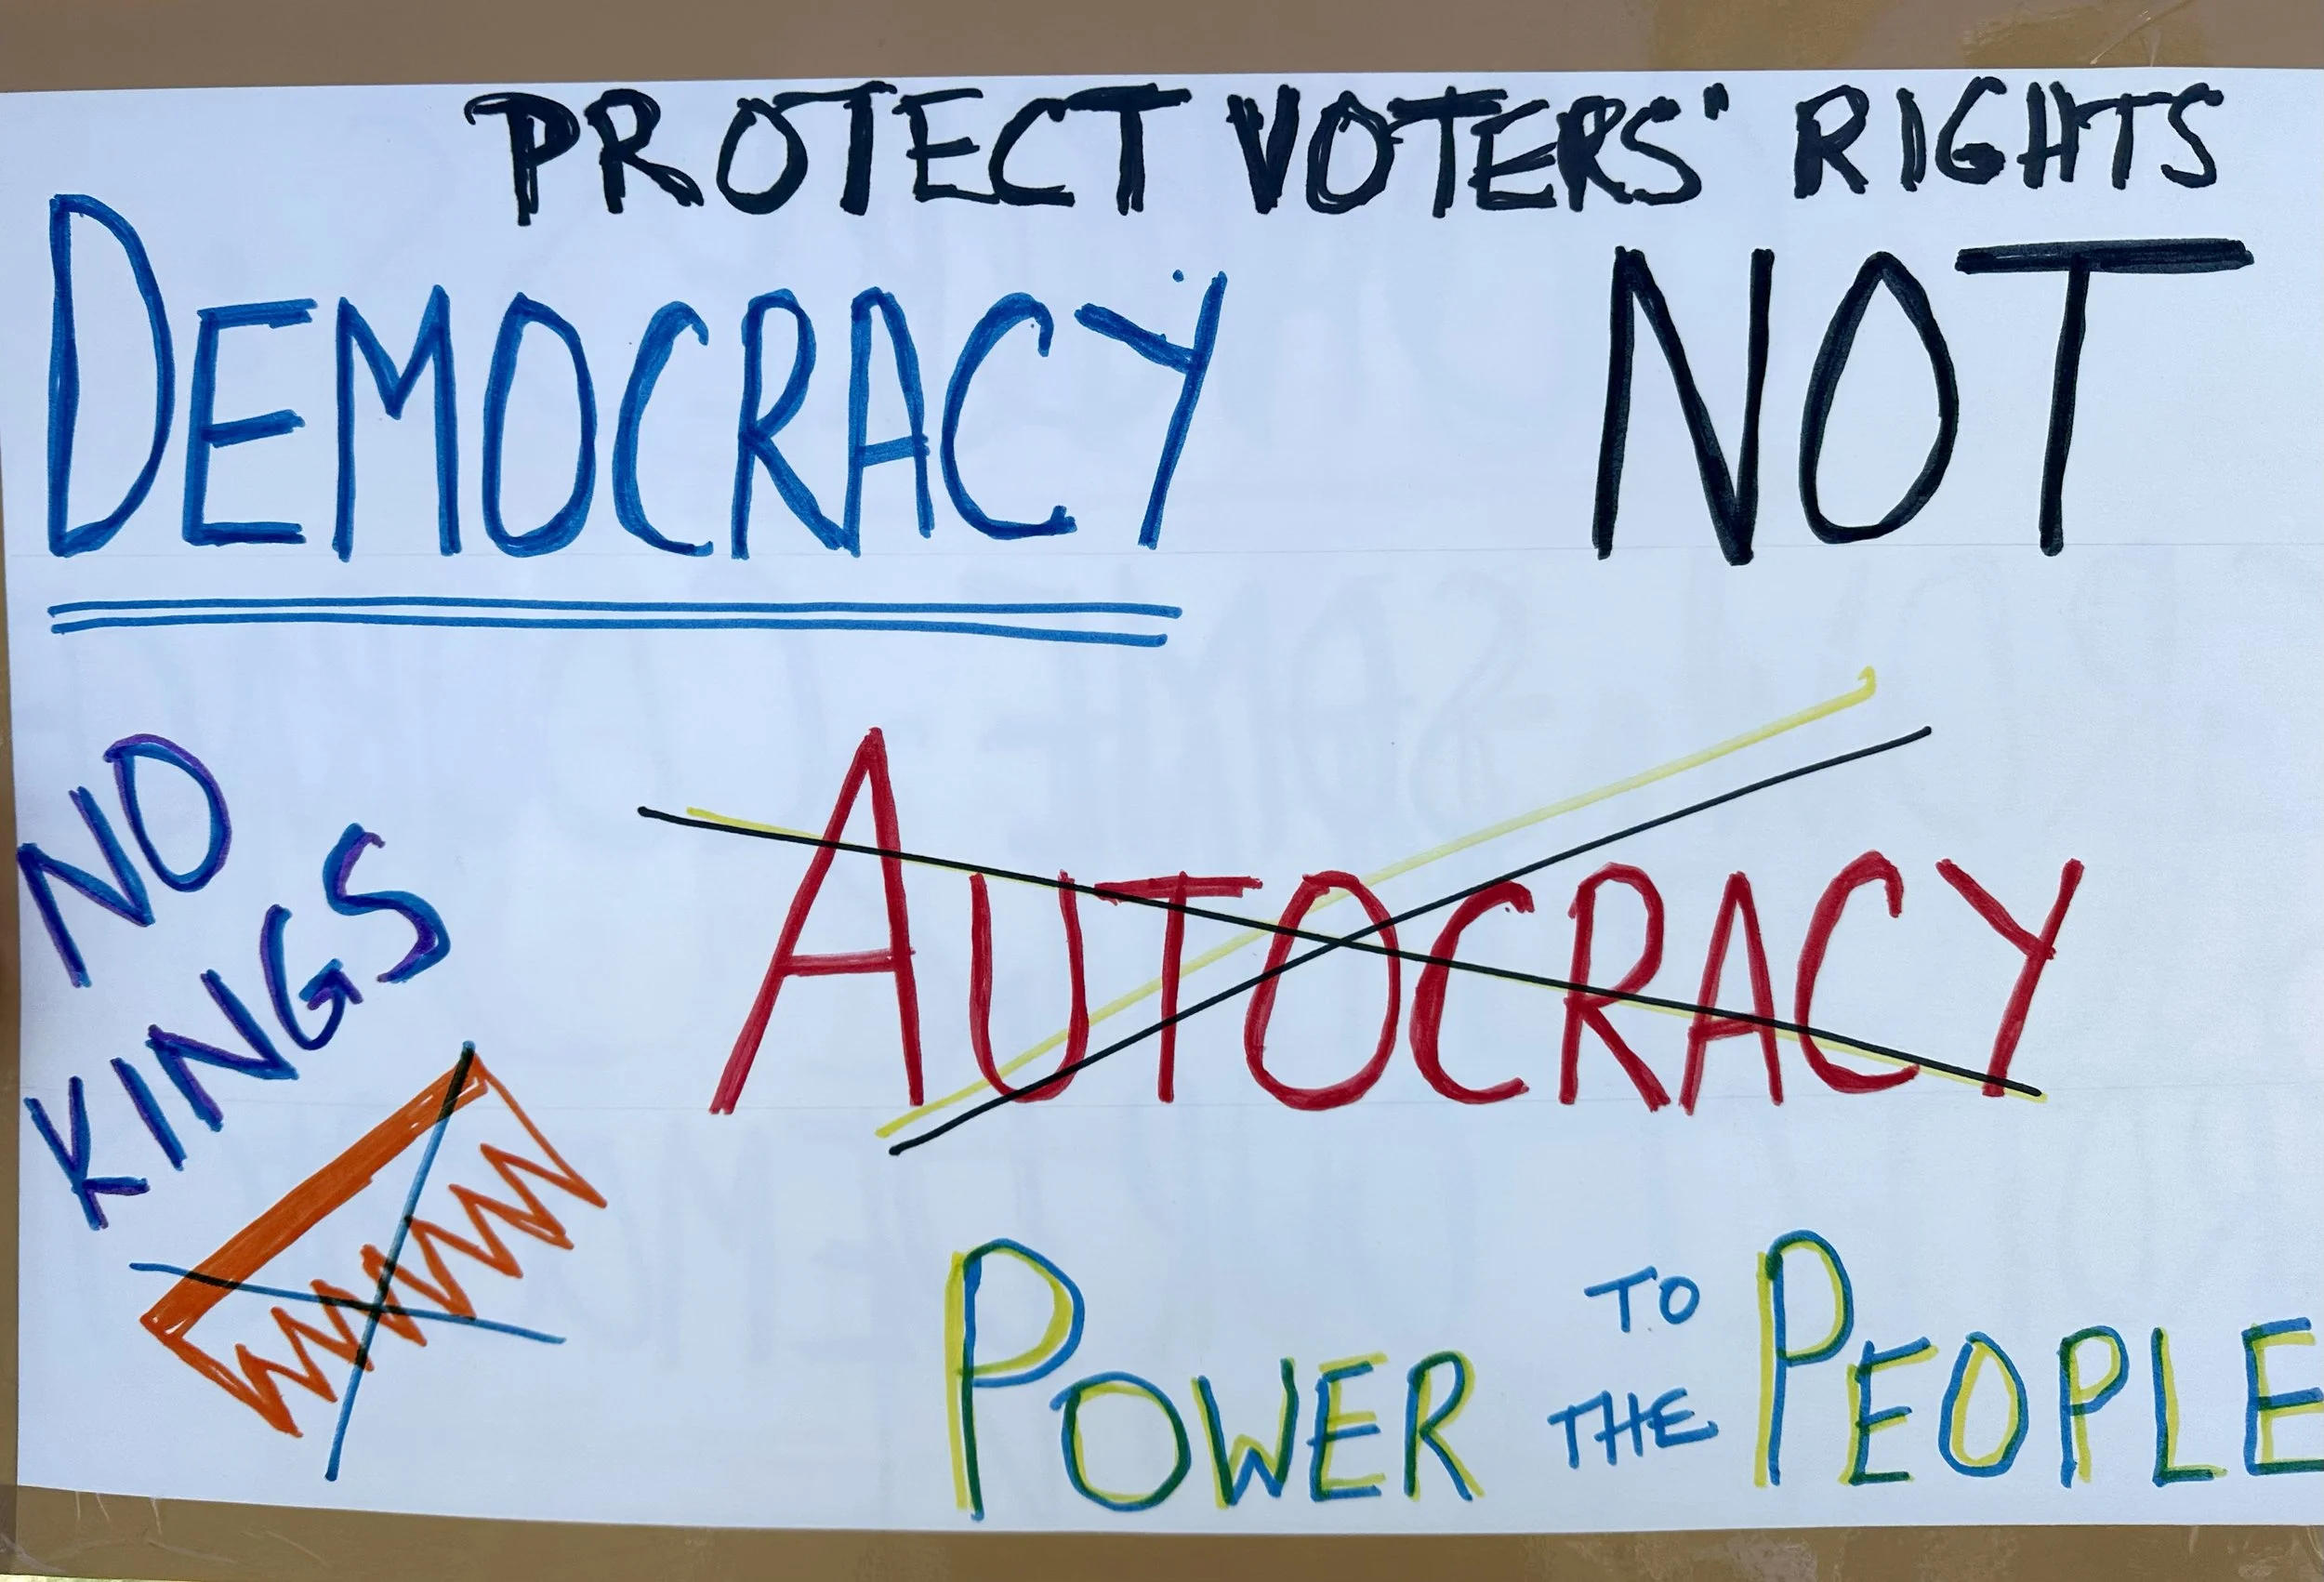 PROTECT VOTERS' RIGHTS
DEMOCRACY NOT
AUTOCRACY
NO
KINGS
POWER TO THE PEOPLE